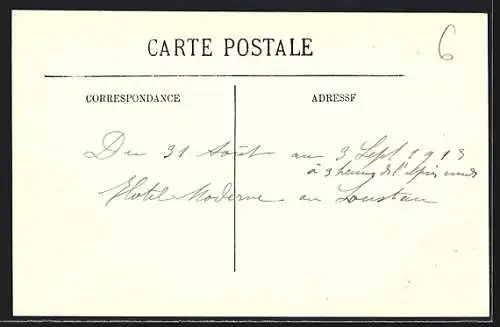 6
CARTE POSTALE
CORRESPONDANCE
ADRESSE
Du 31 Août au 3 Sept 1913
à 3 heures de l'après midi
Hotel Moderne au Loustau